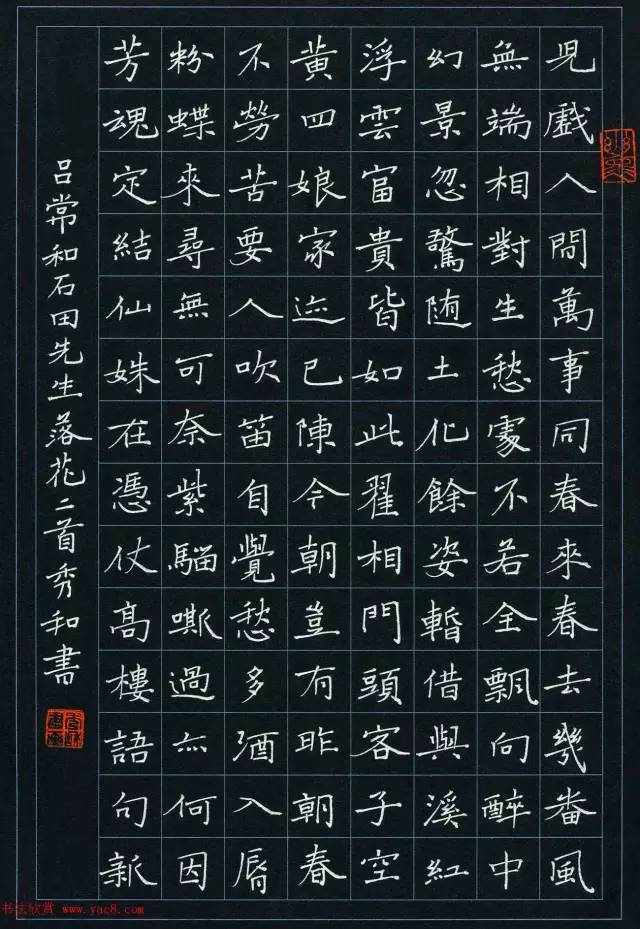 兒戲人間萬事同春來春去幾番風
無端相對生愁處不若全飄向醉中
幻景忽驚随土化餘姿暫借與溪紅
浮雲富貴皆如此翟相門頭客子空
黄四娘家迹已陳今朝豈有昨朝春
不勞苦要人吹笛自覺愁多酒入脣
粉蝶來尋無可奈紫騮嘶過亦何因
芳魂定結仙姝在憑仗髙樓語句新
吕常和石田先生落花二首秀和書
书法欣赏 www.yac8.com